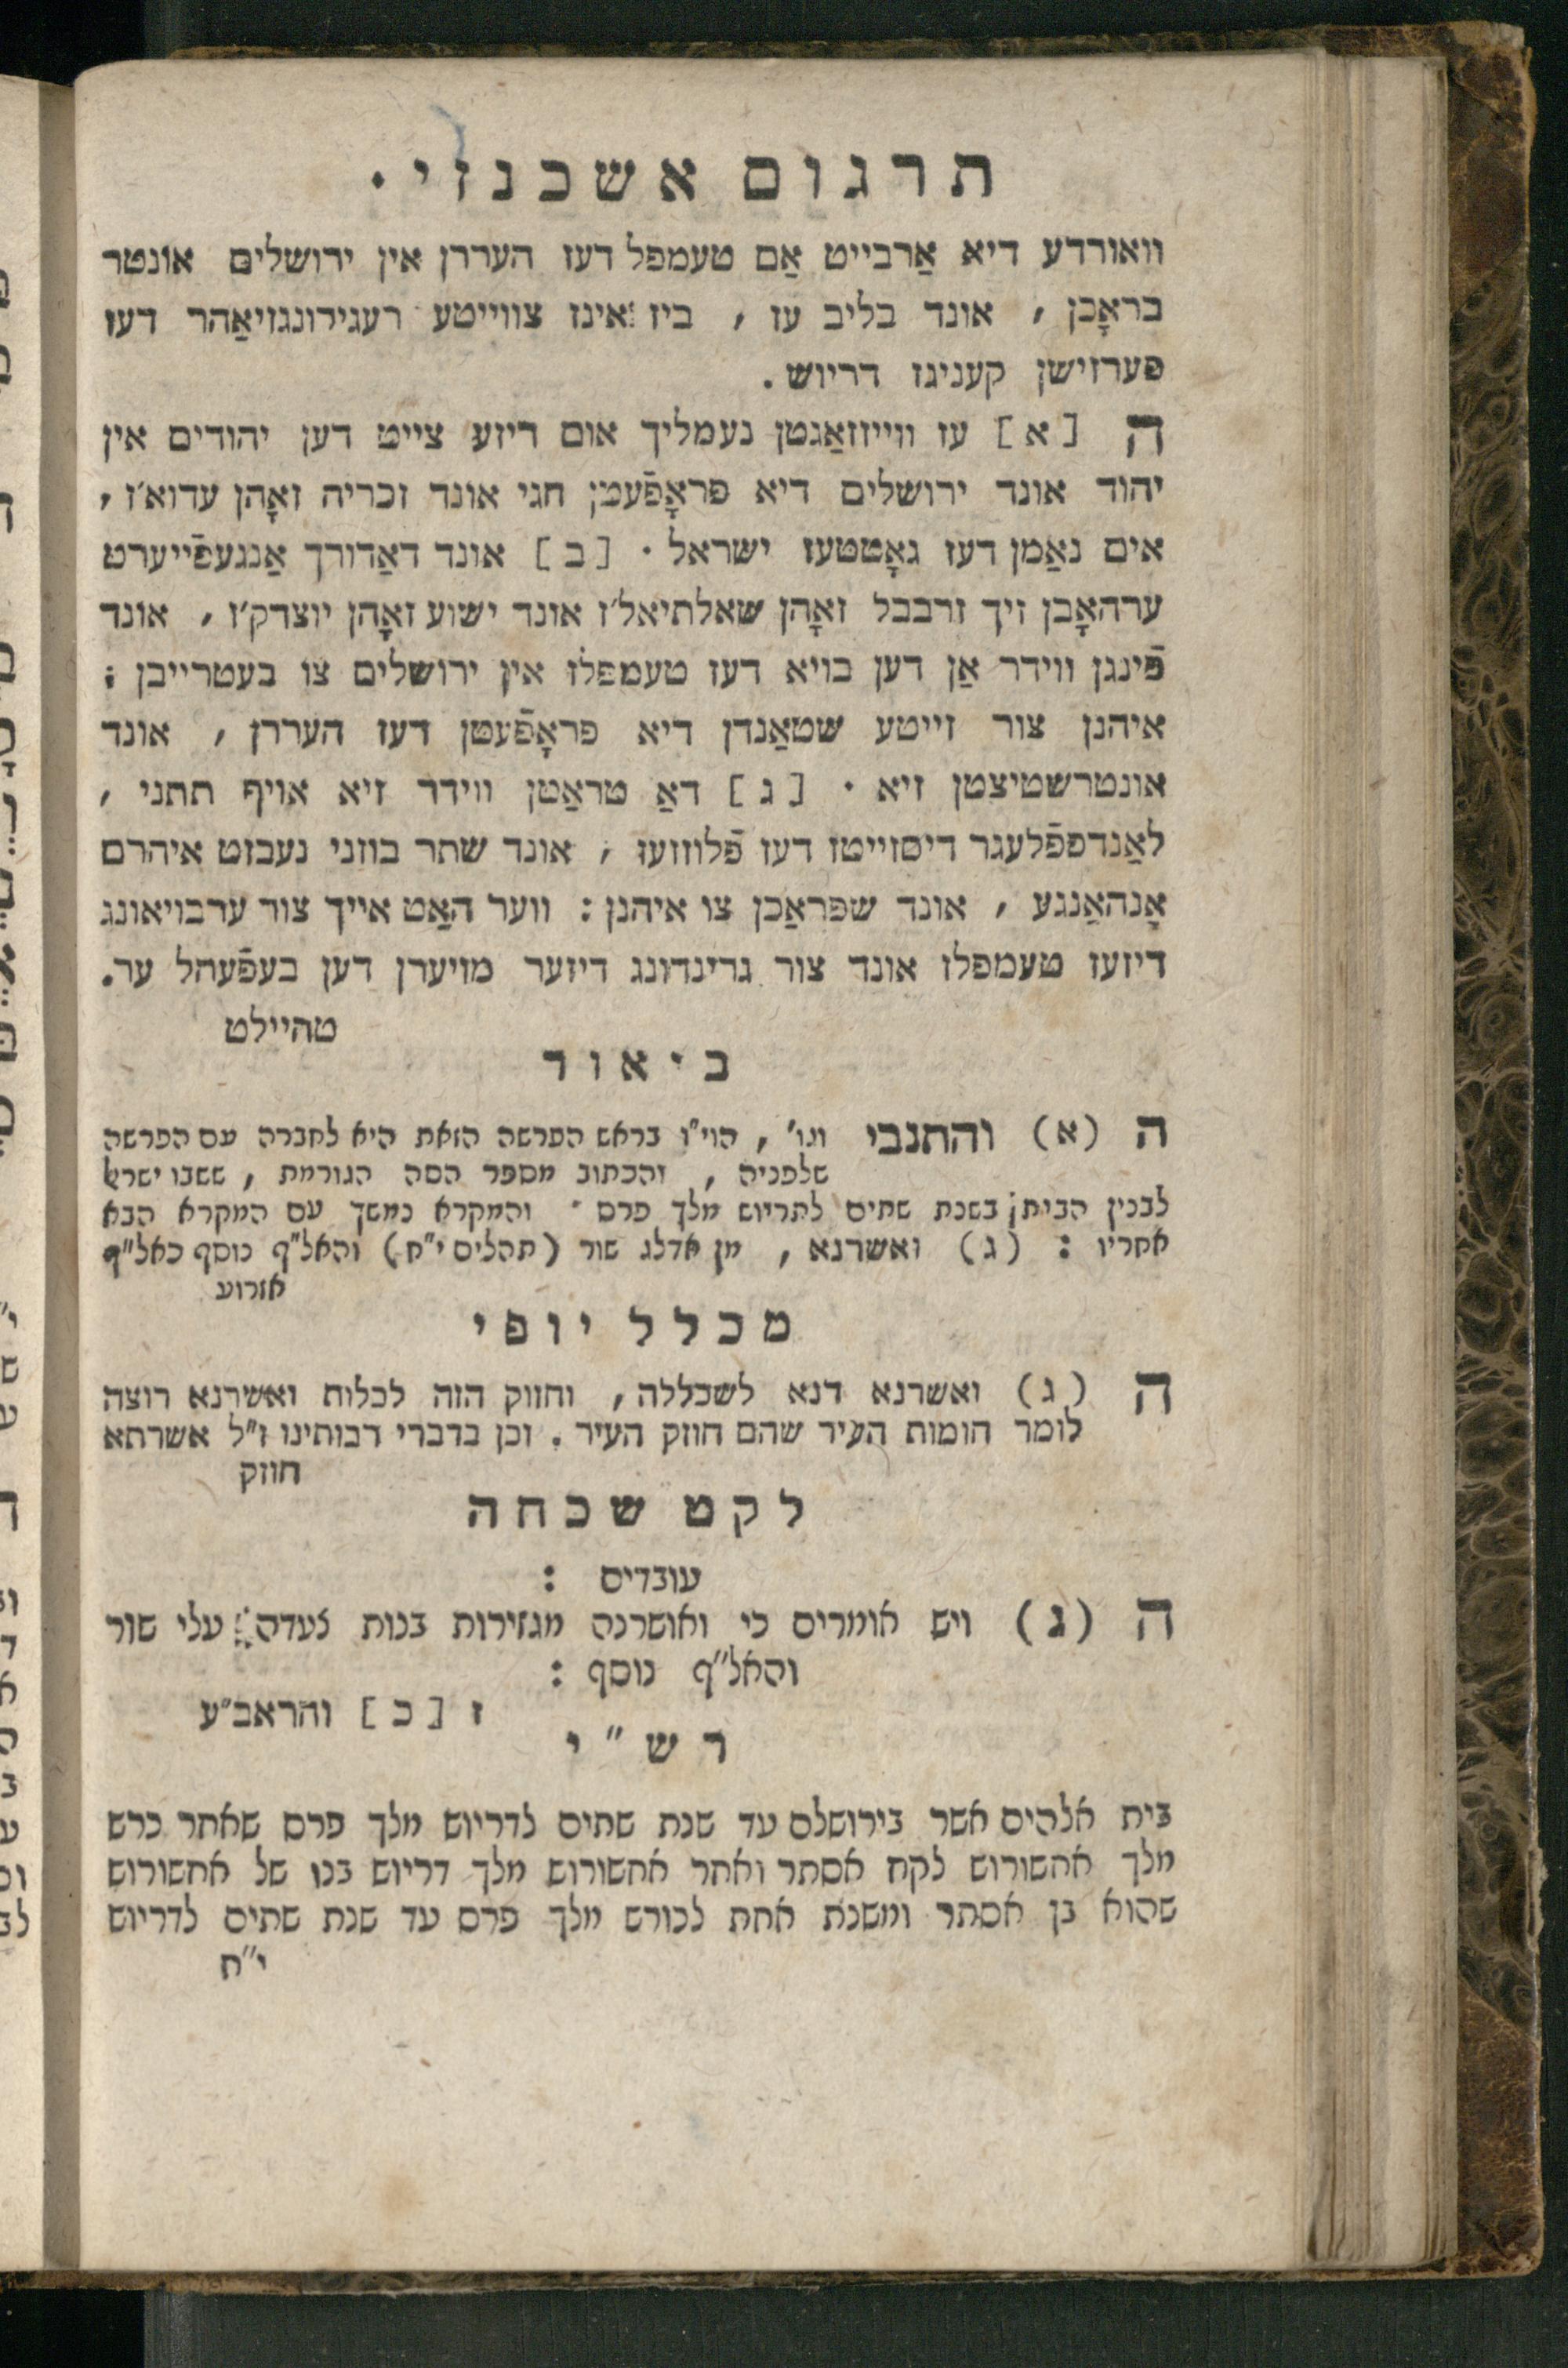 תרגום אשכנזי .
וואורדע דיא אַרבייט אַם טעמפל דעז העררן אין ירושלים אונטר
בראָכן , אונד בליב עז , ביז אינז צווייטע רעגירונגזיאַהר דעז
פערזישן קעניגז דריוש .
ה [א] עז ווייזזאַגטן נעמליך אום דיזע צייט דען יהודים אין
יהוד אונד ירושלים דיא פראָפֿעטן חגי אונד זכריה זאָהן עדוא'ז ,
אים נאַמן דעז גאָטטעז ישראל . [ב] אונד דאַדורך אַנגעפֿייערט
ערהאָבן זיך זרבבל זאָהן שאלתיאל'ז אונד ישוע זאָהן יוצדק'ז , אונד
פֿינגן ווידר אַן דען בויא דעז טעמפלז אין ירושלים צו בעטרייבן :
איהנן צור זייטע שטאַנדן דיא פראָפֿעטן דעז העררן , אונד
אונטרשטיצטן זיא . [ג] דאַ טראַטן ווידר זיא אויף תתני ,
לאַנדספֿלעגר דיסזייטז דעז פֿלוזזעז , אונד שתר בוזני נעבזט איהרם
אָנהאַנגע , אונד שפראַכן צו איהנן : ווער האַט אייך צור ערבויאונג
דיזעז טעמפלז אונד צור גרינדונג דיזער מויערן דען בעפֿעהל ער.
טהיילט
ביאור
ה (א) והתנבי וגו' , הוי"ו בראש הפרשה הזאת היא לחברה עם הפרשה
שלפניה , והכתוב מספר הסה הגורמת , ששבו ישראל
לבנין הבית בשנת שתים לתריוש מלך פרס . והמקרא נמשך עם המקרא הבא
אחריו : (ג) ואשרנא , מן אדלג שור (תהלים י"ח) והאל"ף נוסף כאל"ף
אזרוע
מכלל יופי
ה (ג) ואשרנא דנא לשכללה , וחזוק הזה לכלות ואשרנא רוצה
לומר חומות העיר שהם חוזק העיר . וכן בדברי רבותינו ז"ל אשרתא
חוזק
לקט שכחה
עובדים :
ה (ג) ויש אומרים כי ואושרנה מגזירות בנות צעדה עלי שור
והאל"ף נוסף :
ז [כ] והראב"ע
רש"י
בית אלהים אשר בירושלם עד שנת שתים לדריוש מלך פרס שאחר כרש
מלך אחשורוש לקח אסתר ואחר אחשורוש מלך דריוש בנו של אחשורוש
שהוא בן אסתר ומשנת אחת לכורש מלך פרס עד שנת שתים לדריוש
י"ח